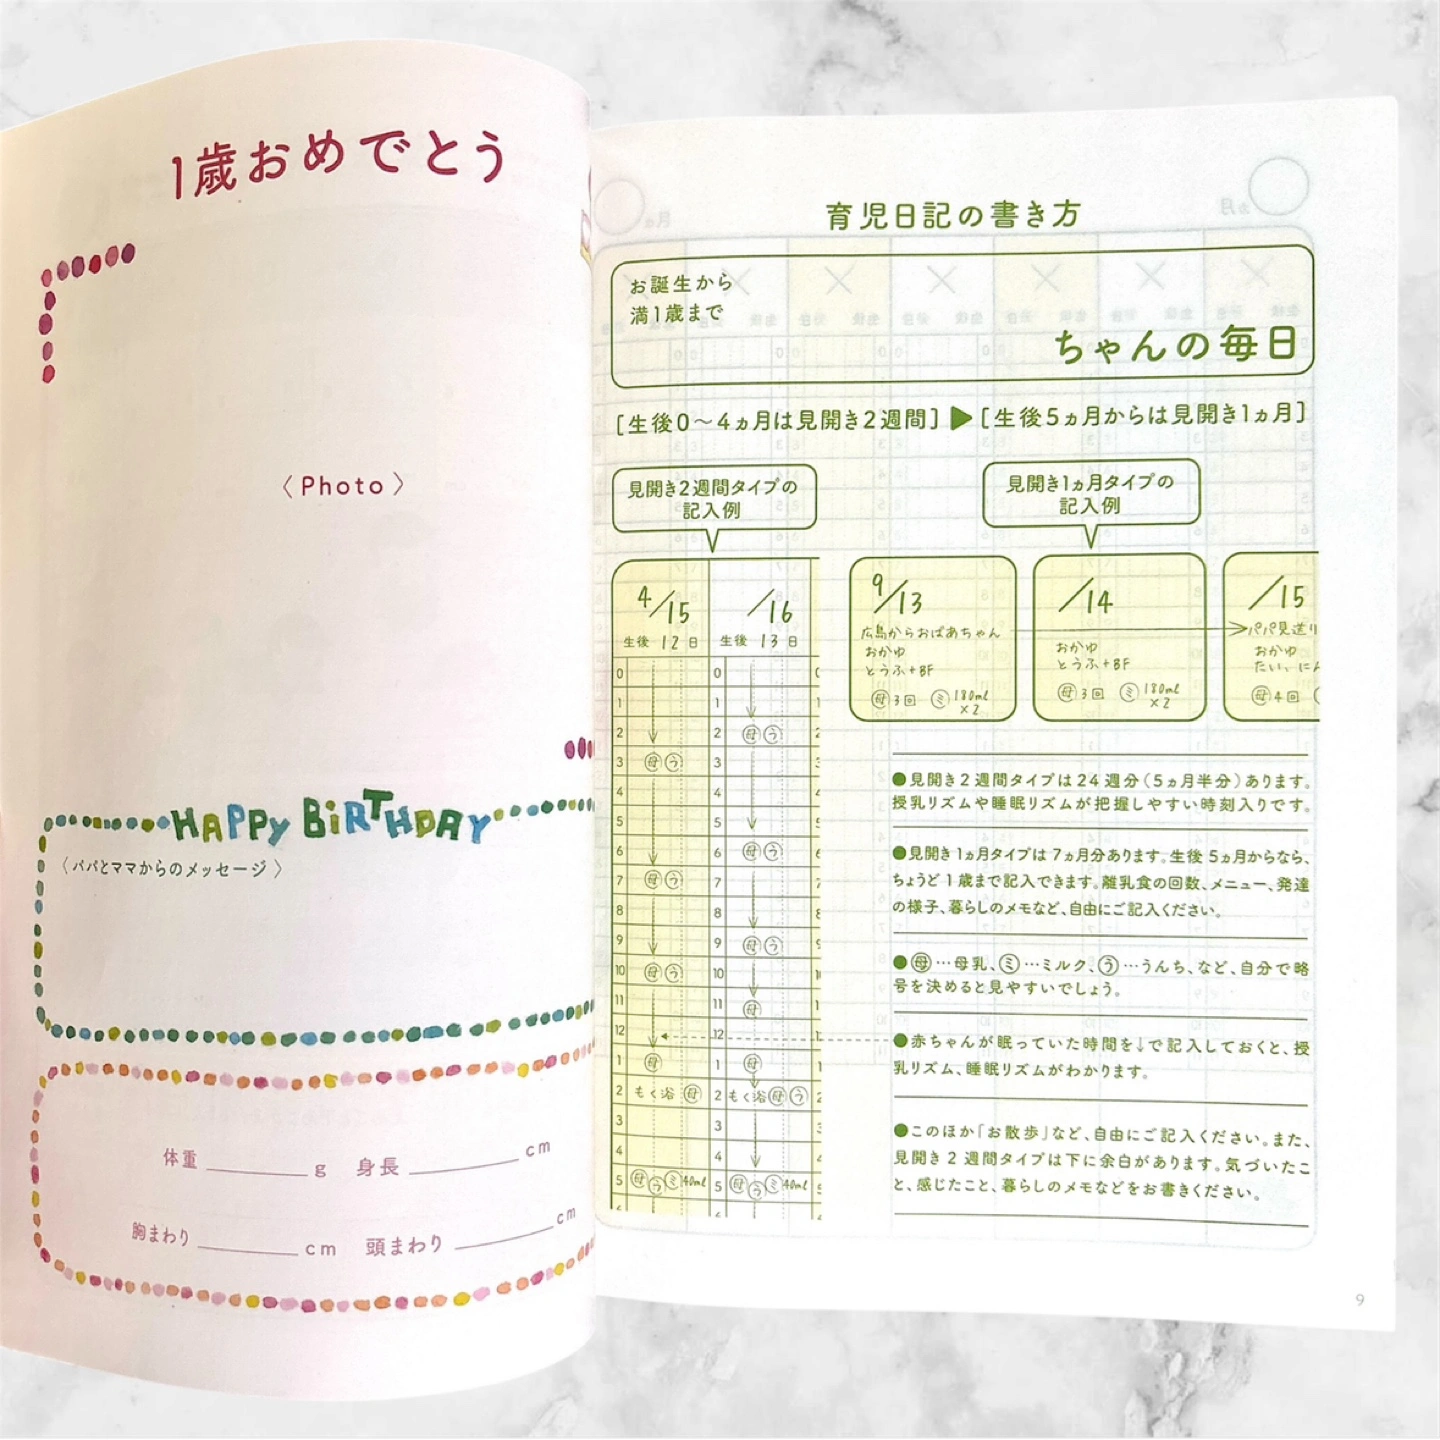 1歳おめでとう
〈Photo〉
HAPPY BiRTHDAY
〈パパとママからのメッセージ〉
体重 g 身長 cm
胸まわり cm 頭まわり cm
育児日記の書き方
お誕生から
満1歳まで
ちゃんの毎日
[生後0〜4ヵ月は見開き2週間]▶[生後5ヵ月からは見開き1ヵ月]
見開き2週間タイプの
記入例
見開き1ヵ月タイプの
記入例
4/15 /16
生後 12日 生後 13日
0 0
1 1
2 2 母 う
3 母 う 3
4 4
5 5
6 6 母 う
7 母 う 7
8 8
9 9 母 う
10 母 う 10
11 11 母
12 12
1 母 1 母
2 もく浴 母 2 もく浴 母 う
3 3
4 4
5 母 う ミ 40ml 5 母 う ミ 40ml
9/13 /14 /15
広島からおばあちゃん パパ見送り
おかゆ おかゆ おかゆ
とうふ+BF とうふ+BF たい、にん
母3回 ミ180ml×2 母3回 ミ180ml×2 母4回
●見開き2週間タイプは24週分(5ヵ月半分)あります。
授乳リズムや睡眠リズムが把握しやすい時刻入りです。
●見開き1ヵ月タイプは7ヵ月分あります。生後5ヵ月からなら、
ちょうど1歳まで記入できます。離乳食の回数、メニュー、発達
の様子、暮らしのメモなど、自由にご記入ください。
●母…母乳、ミ…ミルク、う…うんち、など、自分で略
号を決めると見やすいでしょう。
●赤ちゃんが眠っていた時間を↓で記入しておくと、授
乳リズム、睡眠リズムがわかります。
●このほか「お散歩」など、自由にご記入ください。また、
見開き2週間タイプは下に余白があります。気づいたこ
と、感じたこと、暮らしのメモなどをお書きください。
9